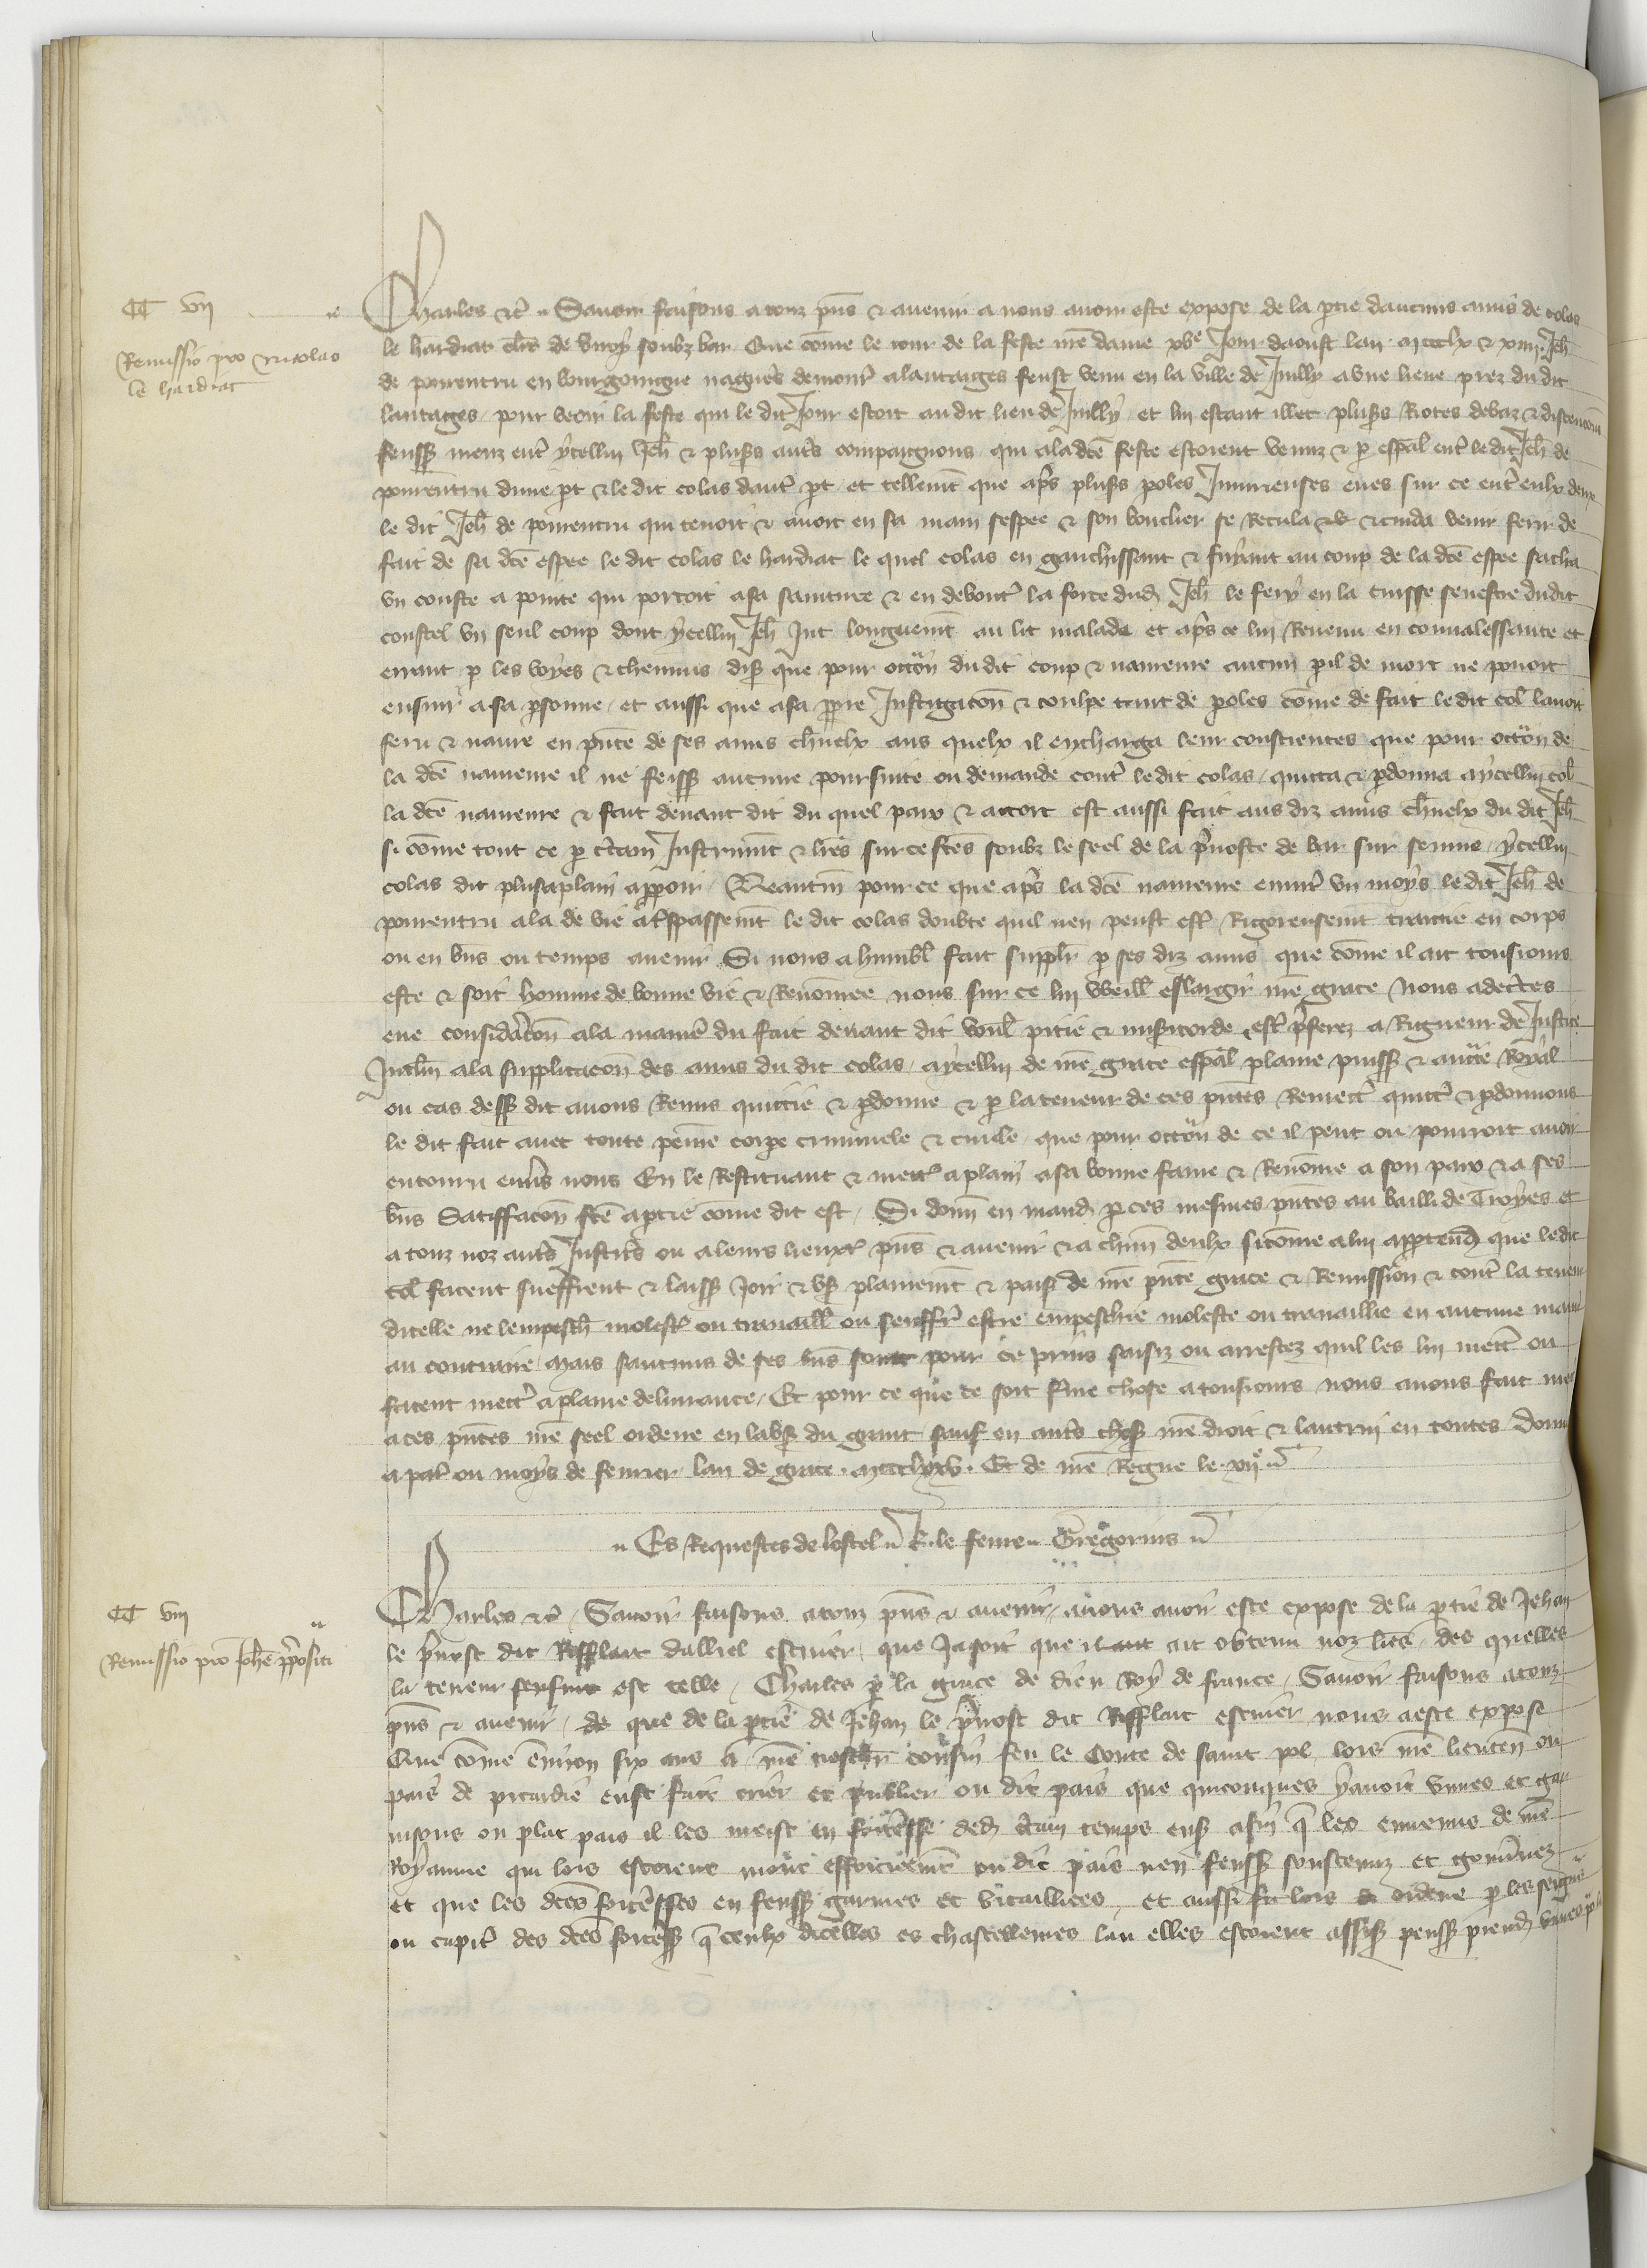 CC VII
Remissio pro Nicolao
le hardiat
Charles etc̃ Savoir faisons a touz p̃ns et avenir a nous avoir este expose de la p̃tie daucuns amis de colas
le hardiat cl̃rc de Viroy soubz bar Que cõme le iour de la feste nr̃e dame xve Iour daoust lan mccclx et xiiii Ieh̃
de porrentru en bourgoingne nagueres demour̃ a lantaiges feust venu en la ville de Iuilly a une lieue prez du dit
lantages pour veoir la feste qui le dit Iour estoit au dit lieu de Iuilly et lui estant illec plus̃s Riotes debaz et discencions
feuss̃ meuz ent̃ ycellui Ieh̃ et plus̃s aut̃s compaignons qui a la dc̃e feste estoient venuz et p̃ esp̃al ent̃ le dit Ieh̃ de
porrentru dune p̃t et le dit colas daut̃ p̃t et tellem̃t que ap̃s plus̃s p̃oles Iniurieuses eues sur ce ent̃ eulx deux
le dit Ieh̃ de porrentru qui tenoit et avoit en sa main sespee et son bouclier se Recula et cuida venir ferir de
fait de sa dc̃e espee le dit colas le hardiat le quel colas en gauchissant et fuyant au coup de la dc̃e espee sacha
un coustel a pointe qui portoit a sa sainture et en debout̃ la force dud̃ Ieh̃ le fery en la cuisse senestre dudit
coustel un seul coup dont ycellui Ieh̃ Iut longuem̃t au lit malade et ap̃s ce lui Revenu en convalessance et
errant p̃ les voyes et chemins dis̃ que pour occõn du dit coup et navreure aucun p̃il de mort ne povoit
ensuir a sa p̃sonne et aussi que a sa pp̃re Instigacõn et coulpe tant de p̃oles cõme de fait le dit col̃ lavoit
feru et navre en p̃nce de ses amis ch̃nelx aus quelx il encharga leur consciences que pour occõn de
la dc̃e navreure il ne feiss̃ aucune poursuite ou demande cont̃ le dit colas quicta et p̃donna a ycellui col̃
la dc̃e navreure et fait devant dit du quel paix et accort est aussi fait aus diz amis ch̃nelx du dit Ieh̃
si cõme tout ce p̃ c̃tain Instrum̃t et lr̃es sur ce fc̃es soubz le seel de la p̃voste de bar sur senne ycellui
colas dit plus a plain app̃oir Neantm̃ pour ce que ap̃s la dc̃e navreure envir̃ un moys le dit Ieh̃ de
porrentru ala de vie a t̃spassem̃t le dit colas doubte quil nen peust est̃ Rigoreusem̃t traictie en corps
ou en biẽs ou temps avenir Si nous a humbl̃ fait suppl̃r p̃ ses diz amis que cõme il ait tousiours
este et soit homme de bonne vie et Renõmee nous sur ce lui vueill̃ eslargir nr̃e grace Nous adec̃tes
eue considẽracõn a la manie̾ du fait devant dit voul̃ pitie et mis̃icorde est̃ p̃ferez a Rigueur de Iustice
Incl̃in a la supplicacõn des amis du dit colas a ycellui de nr̃e grace esp̃al plaine puiss̃ et auct̃e Royal
ou cas dess̃ dit avons Remis quictie et p̃donne et p̃ la teneur de ces p̃ntes Remect̃ quict̃ et p̃donnons
le dit fait avec toute peine corp̃e criminele et civile que pour occõn de ce il peut ou pourroit avoir
encouru env̾s nous En le Restituant et mect̃ a plain a sa bonne fame et Renõme a son pais et a ses
biẽs Satiffacõn fc̃e a p̃tie cõme dit est Si donñ en mand̃ p̃ ces mesmes p̃ntes au bailli de Troyes et
a touz noz aut̃s Iustic̃s ou a leurs lieuxt̃ p̃ns et avenir et a chũn deulx si cõme a lui app̃tend̃ que le dit
col̃ facent sueffrent et laiss̃ Ioir et us̃ plainem̃t et pais̃ de nr̃e p̃nte grace et Remission et cont̃ la teneur
dicelle ne lempesch̃ molest̃ ou travaill̃ ou seuffr̃ estre empeschie moleste ou travaillie en aucune mani̾e
au contraire Mais saucuns de ses biẽs sont pour ce prins saisiz ou arrestez quil les lui mett̃ ou
facent mett̃ a plaine delivrance Et pour ce que ce soit ferme chose a tousiours nous avons fait met̃
a ces p̃ntes nr̃e seel ordene en labs̃ du grant sauf en aut̃s chos̃ nr̃e droit et lautrui en toutes Donne
a par̃ ou moys de fevrier lan de grace mccclxxv Et de nr̃e Regne le xiie
Es Requestes de lostel J. le fevre Gregorius
CC VIII
Remissio pro Ioh̃e p̃positi
Charles etc̃ Savoir faisons a touz p̃ns et avenir a nous avoir este expose de la p̃tie de Jehan
le p̃vost dit Rifflart dalliel escuier que Jasoit que il ait obtenu noz lr̃es des quelles
la teneur sensuit est telle Charles p̃ la grace de dieu Roy de france Savoir faisons a touz
p̃ns et avenir que de la p̃tie de Jehan le p̃vost dit Rifflart escuier nous a este expose
Que cõme envirõn six ans a nr̃e treschier cousin feu le Conte de saint pol lors nr̃e lieuteñ ou
pais de picardie eust fait crier et publier ou dit pais que quiconques y avoit vivres et gar
nisons ou plat pais il les meist en fort̾esse ded̃ c̃tain temps ens̃ afin q̃ les ennemis de nr̃e
Royaume qui lors estoient mout efforcieem̃t ou dit pais nen feuss̃ soustenuz et gouv̾nez
et que les dc̃es fort̾esses en feuss̃ garnies et vitaillees et aussi fu lors ordene p̃ les seign̾s
ou capit̃ des dc̃es fort̾ess̃ q̃ ceulx dicelles es chastellenies lau elles estoient assis̃ peuss̃ prend̃ vivres